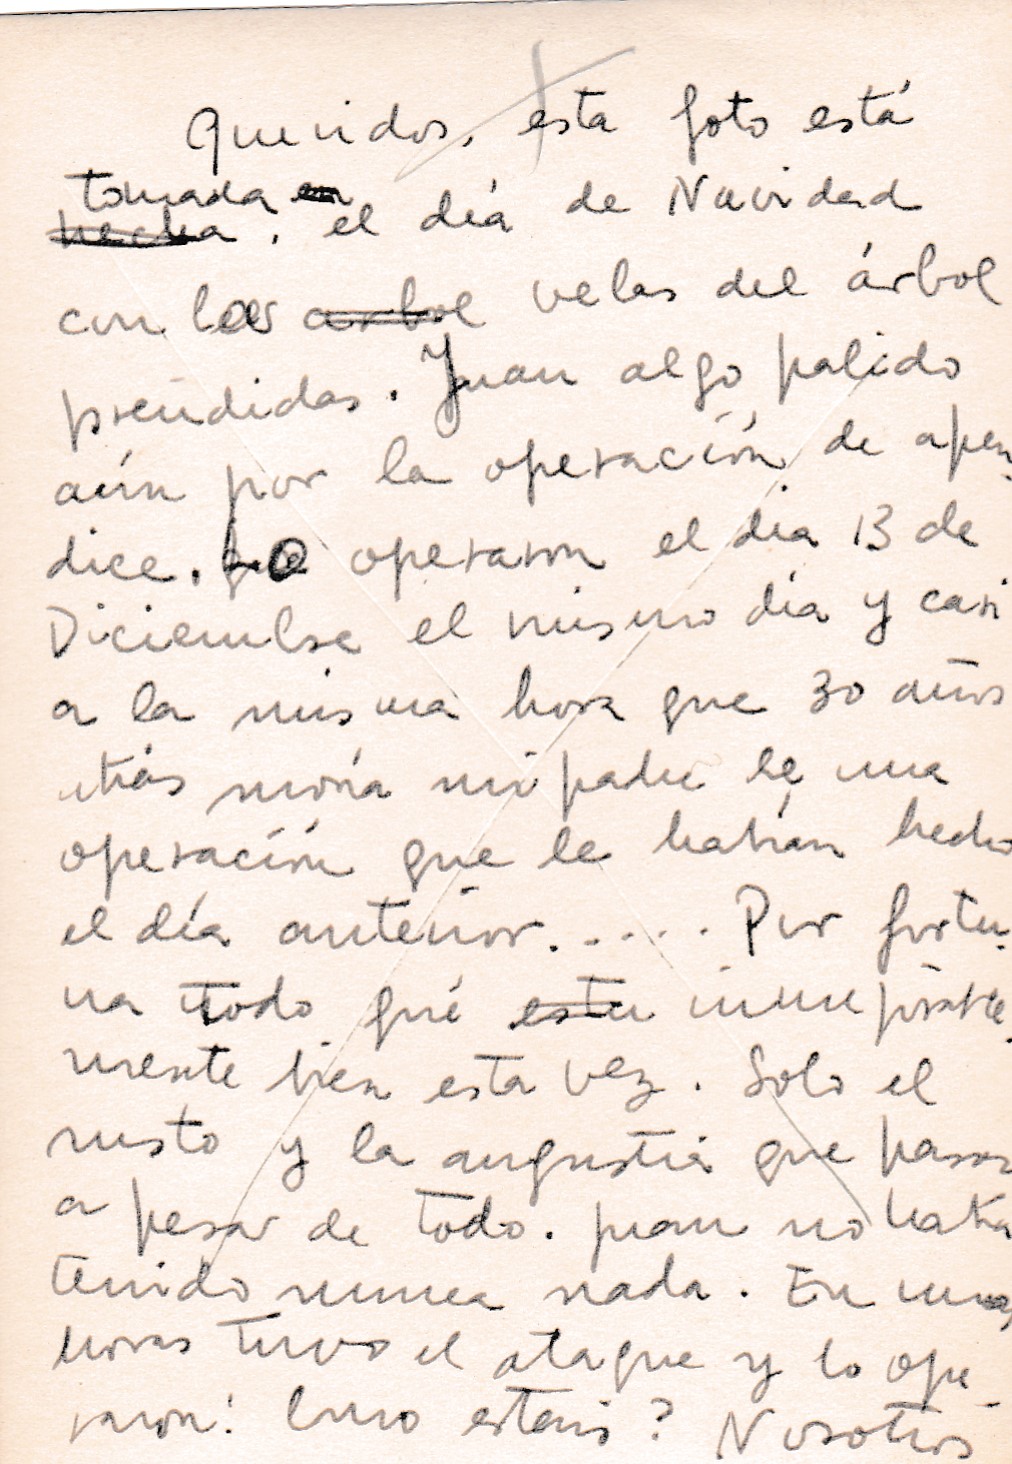 Queridos, esta foto está
tomada en
hecha, el día de Navidad
con las arbol velas del árbol
prendidas. Juan algo palido
aún por la operación de apen-
dice. Lo operaron el dia 13 de
Diciembre el mismo día y casi
a la misma hora que 30 años
atrás moría mi padre de una
operación que le habían hecho
el día anterior..... Por fortu-
na todo fué esta inmejorable-
mente bien esta vez. Solo el
susto y la angustia que pasas
a pesar de todo. Juan no habia
tenido nunca nada. En unas
horas tuvo el ataque y lo ope-
raron! Como estais? Nosotros